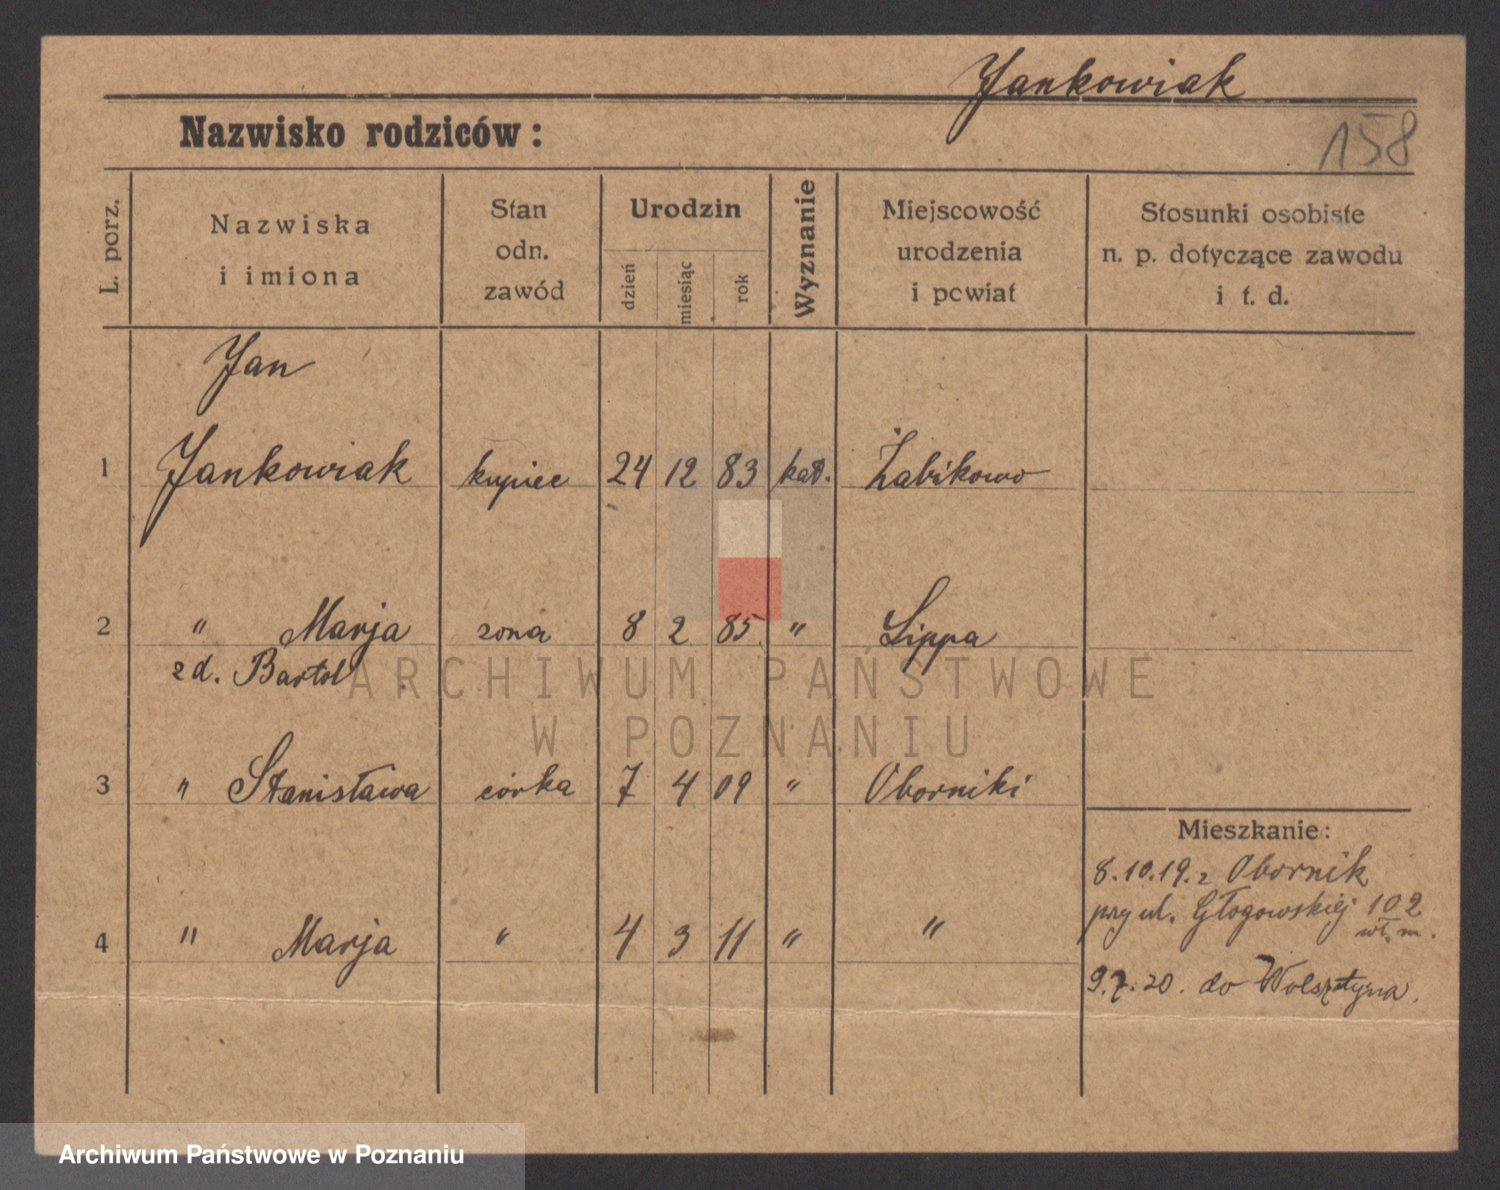 Jankowiak
Nazwisko rodziców:
158
L. porz.
Nazwiska
i imiona
Stan
odn.
zawód
Urodzin
dzień
miesiąc
rok
Wyznanie
Miejscowość
urodzenia
i powiat
Stosunki osobiste
n. p. dotyczące zawodu
i t. d.
Jan
1 Jankowiak kupiec 24 12 83 kat. Żabikowo
2 " Marja żona 8 2 85 " Lippa
z d. Bartol
3 " Stanisława córka 7 4 09 " Oborniki
4 " Marja " 4 3 11 " "
Mieszkanie:
8.10.19. z Obornik
przy ul. Głogowskiej 102
wł. m.
9.7.20. do Wolsztyna.
ARCHIWUM PAŃSTWOWE
W POZNANIU
Archiwum Państwowe w Poznaniu